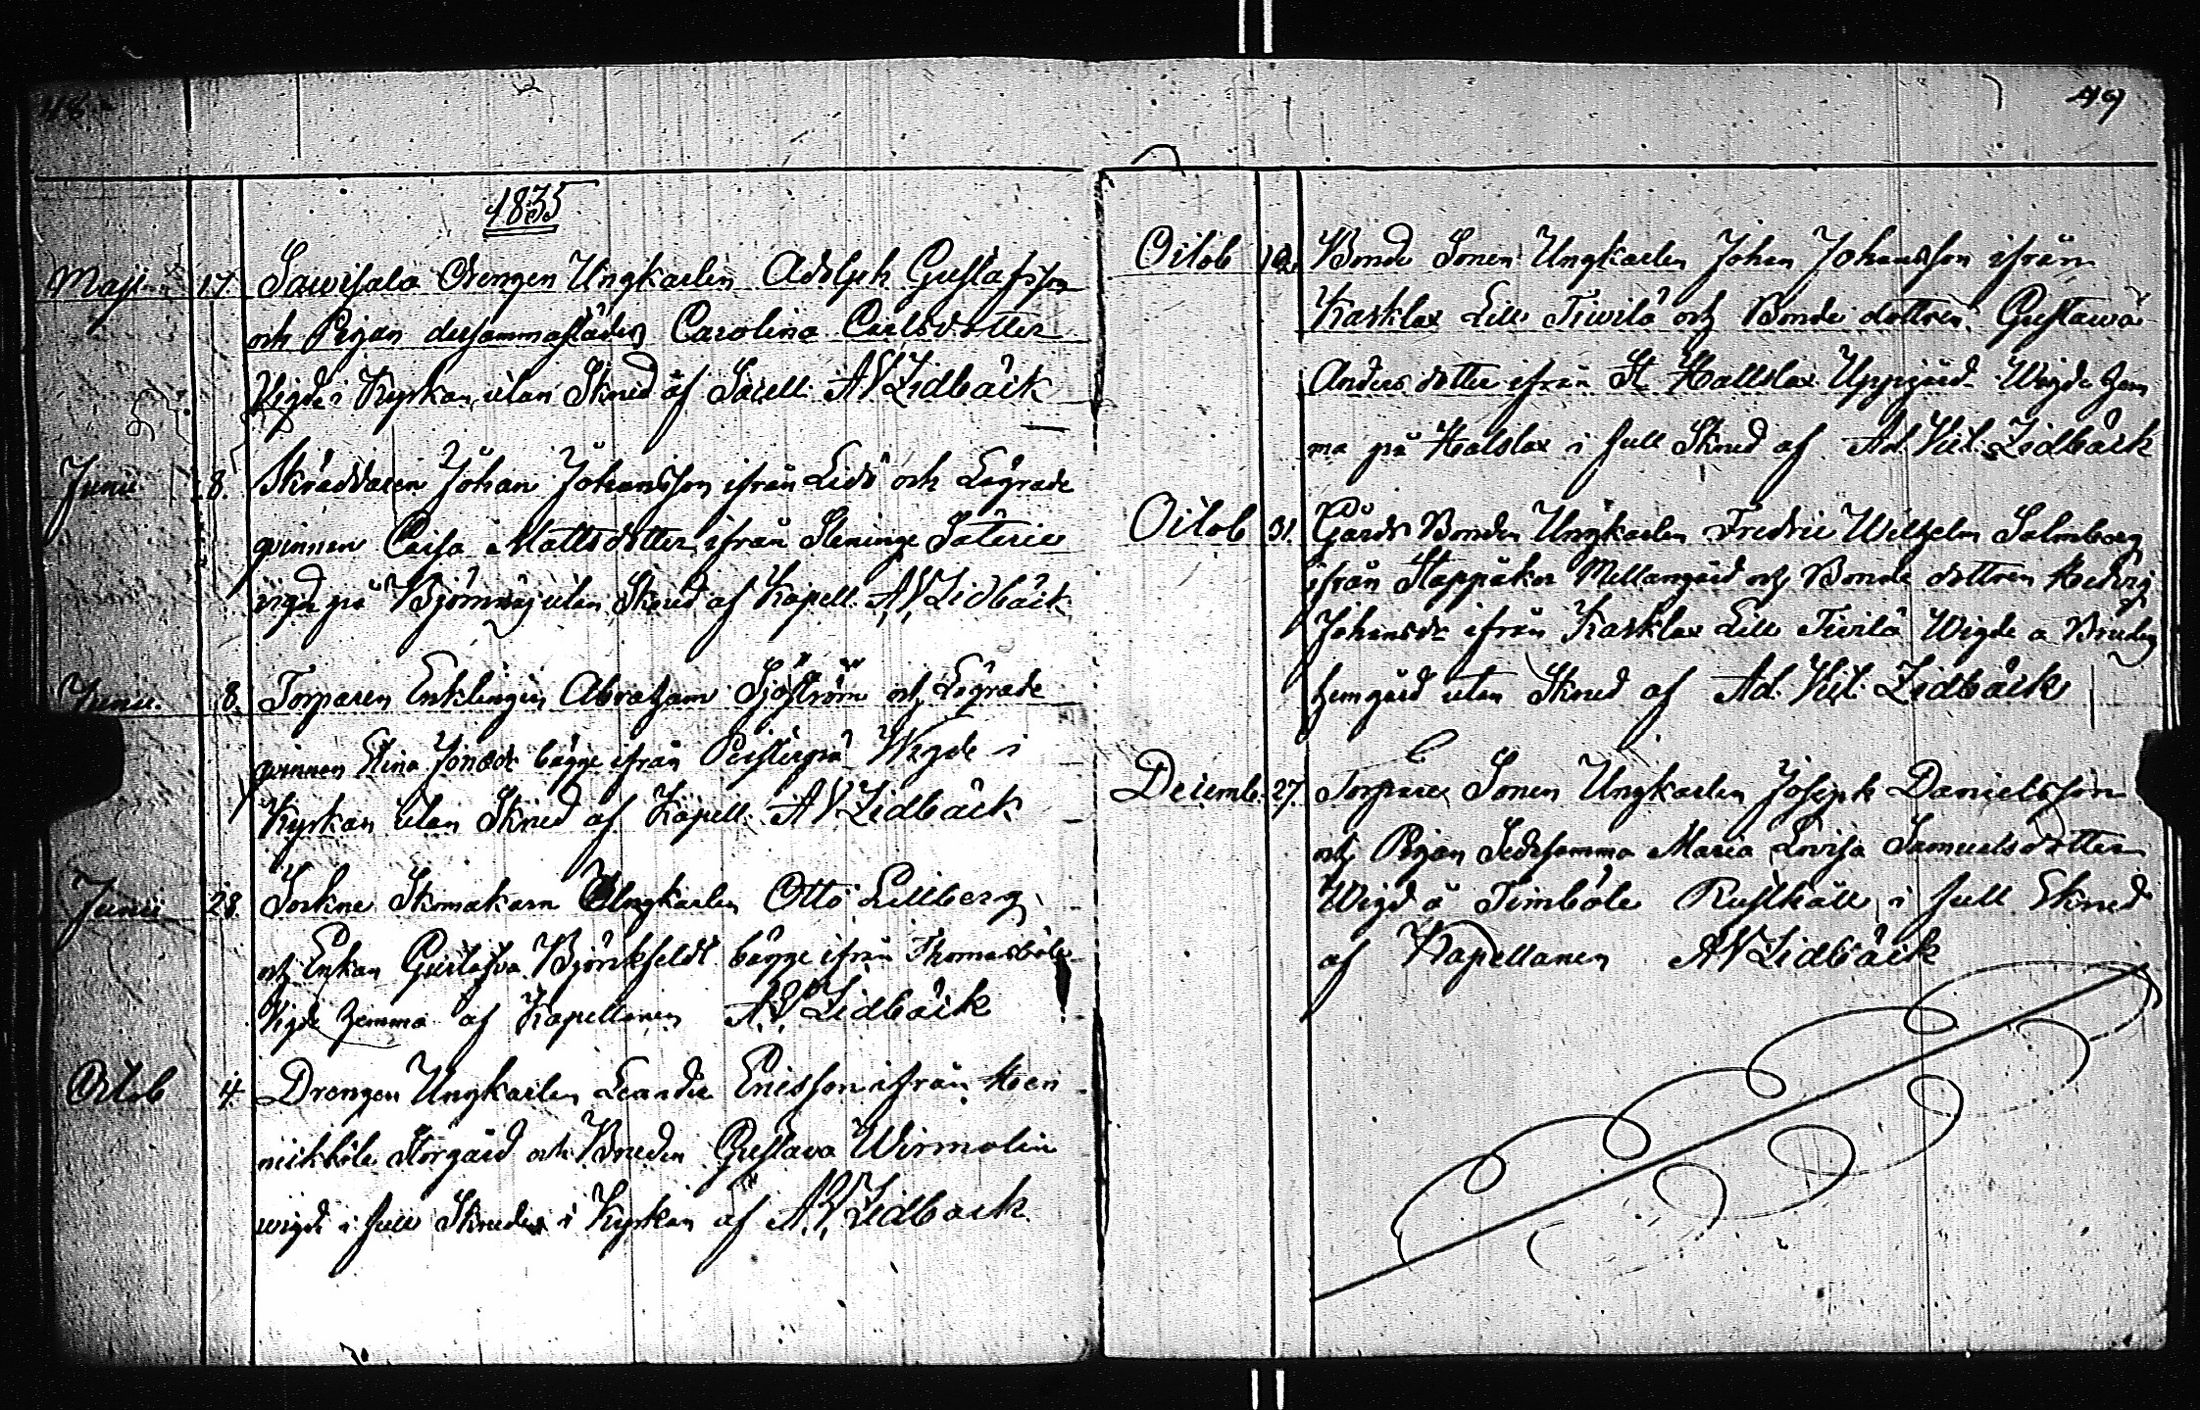 48
1835
Maji 17. Sawisalo Drengen Ungkarlen Adolph Gustafsson
och Pigan dersammastädes Carolina Carlsdotter
Vigde i Kyrkan utan Skrud af Sacell. A V Lidbäck
Junii 8. Skräddaren Johan Johansson ifrån Lidö och Lägrade
qvinnan Caisa Mattsdotter ifrån Steninge Säterie
vigde på utan Skrud af Kapell. A. V. Lidbäck
Junii. 8. Torparen Enklingen Abraham Sjöström och Lägrade
qvinnan Stina Jonasdr bägge ifrån Wigde i
Kyrkan utan Skrud af Kapell. A V Lidbäck
Junii 28. Sockne Skomakarn Ungkarlen Otto Lillberg
och Enkan Gustafva Björkfeldt bägge ifrån Thomasböle
Vigde hemma af Kapellanen A. V. Lidbäck
Octob 4. Drengen Ungkarlen Leander Ericsson ifrån Hen
nickböle Storgård och Bruden Gustava Wirmolin
wigde i full Skrud i Kyrkan af A. V. Lidback
49
Octob 12. Bonde Sonen Ungkarlen Johan Johansson ifrån
Kasklax Lill Tivilä och Bonde dottren Gustawa
Anders dotter ifrån St Hallslax Uppgård Wigde hem
ma på Halslax i full Skrud af Ad. Vil. Lidbäck
Octob 31. Gårds Bonden Ungkarlen Fredric Wilhelm Salmberg
ifrån Stappåker Mellangård och Bonde dottren Hedvig
Johansdr ifrån Kasklax Lill Tivilä Wigde a Brudens
hemgård utan Skrud af Ad. Vil. Lidbäck
Decemb. 27. Torpare Sonen Ungkarlen Joseph Danielsson
och Pigan Maria Lovisa Samuelsdotter
Wigd å Simböle Rusthåll i full Skrud
af Kapellanen A V Lidbäck